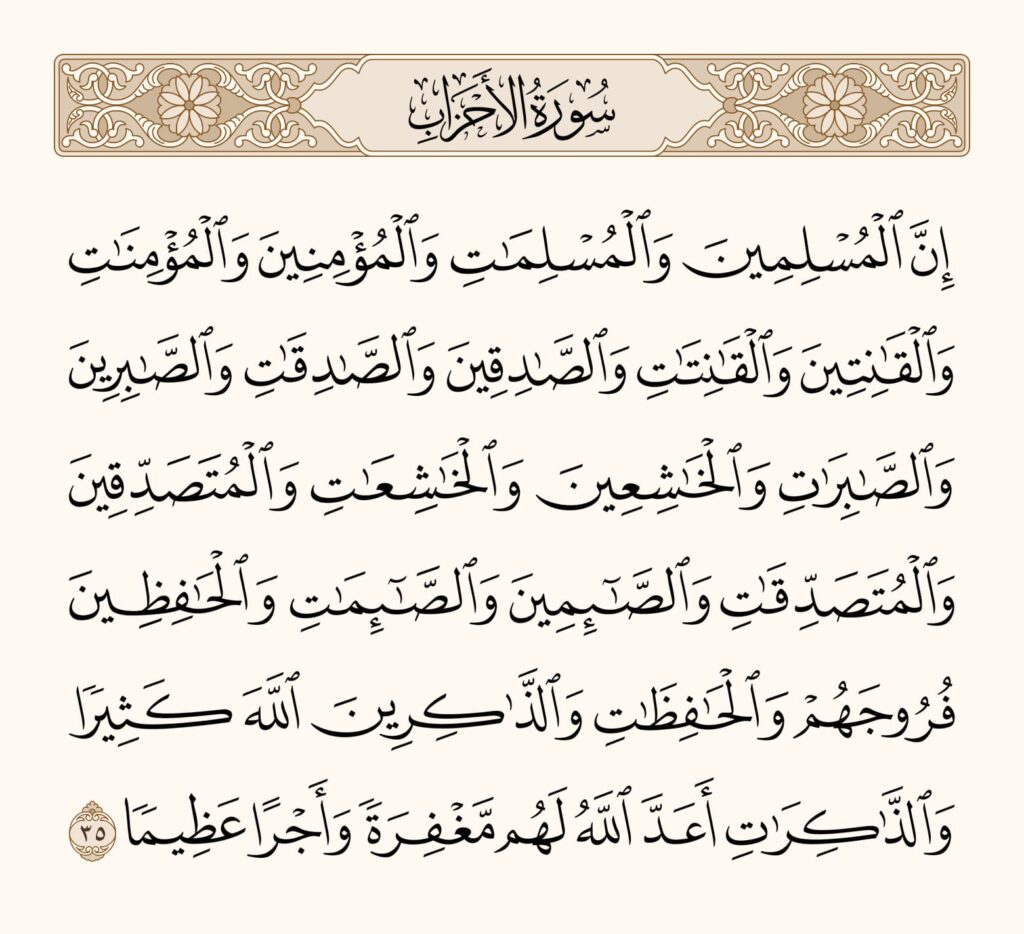 سُورَةُ الأَحْزَابِ
إِنَّ ٱلْمُسْلِمِينَ وَٱلْمُسْلِمَٰتِ وَٱلْمُؤْمِنِينَ وَٱلْمُؤْمِنَٰتِ
وَٱلْقَٰنِتِينَ وَٱلْقَٰنِتَٰتِ وَٱلصَّٰدِقِينَ وَٱلصَّٰدِقَٰتِ وَٱلصَّٰبِرِينَ
وَٱلصَّٰبِرَٰتِ وَٱلْخَٰشِعِينَ وَٱلْخَٰشِعَٰتِ وَٱلْمُتَصَدِّقِينَ
وَٱلْمُتَصَدِّقَٰتِ وَٱلصَّٰٓئِمِينَ وَٱلصَّٰٓئِمَٰتِ وَٱلْحَٰفِظِينَ
فُرُوجَهُمْ وَٱلْحَٰفِظَٰتِ وَٱلذَّٰكِرِينَ ٱللَّهَ كَثِيرًا
وَٱلذَّٰكِرَٰتِ أَعَدَّ ٱللَّهُ لَهُم مَّغْفِرَةً وَأَجْرًا عَظِيمًا ٣٥